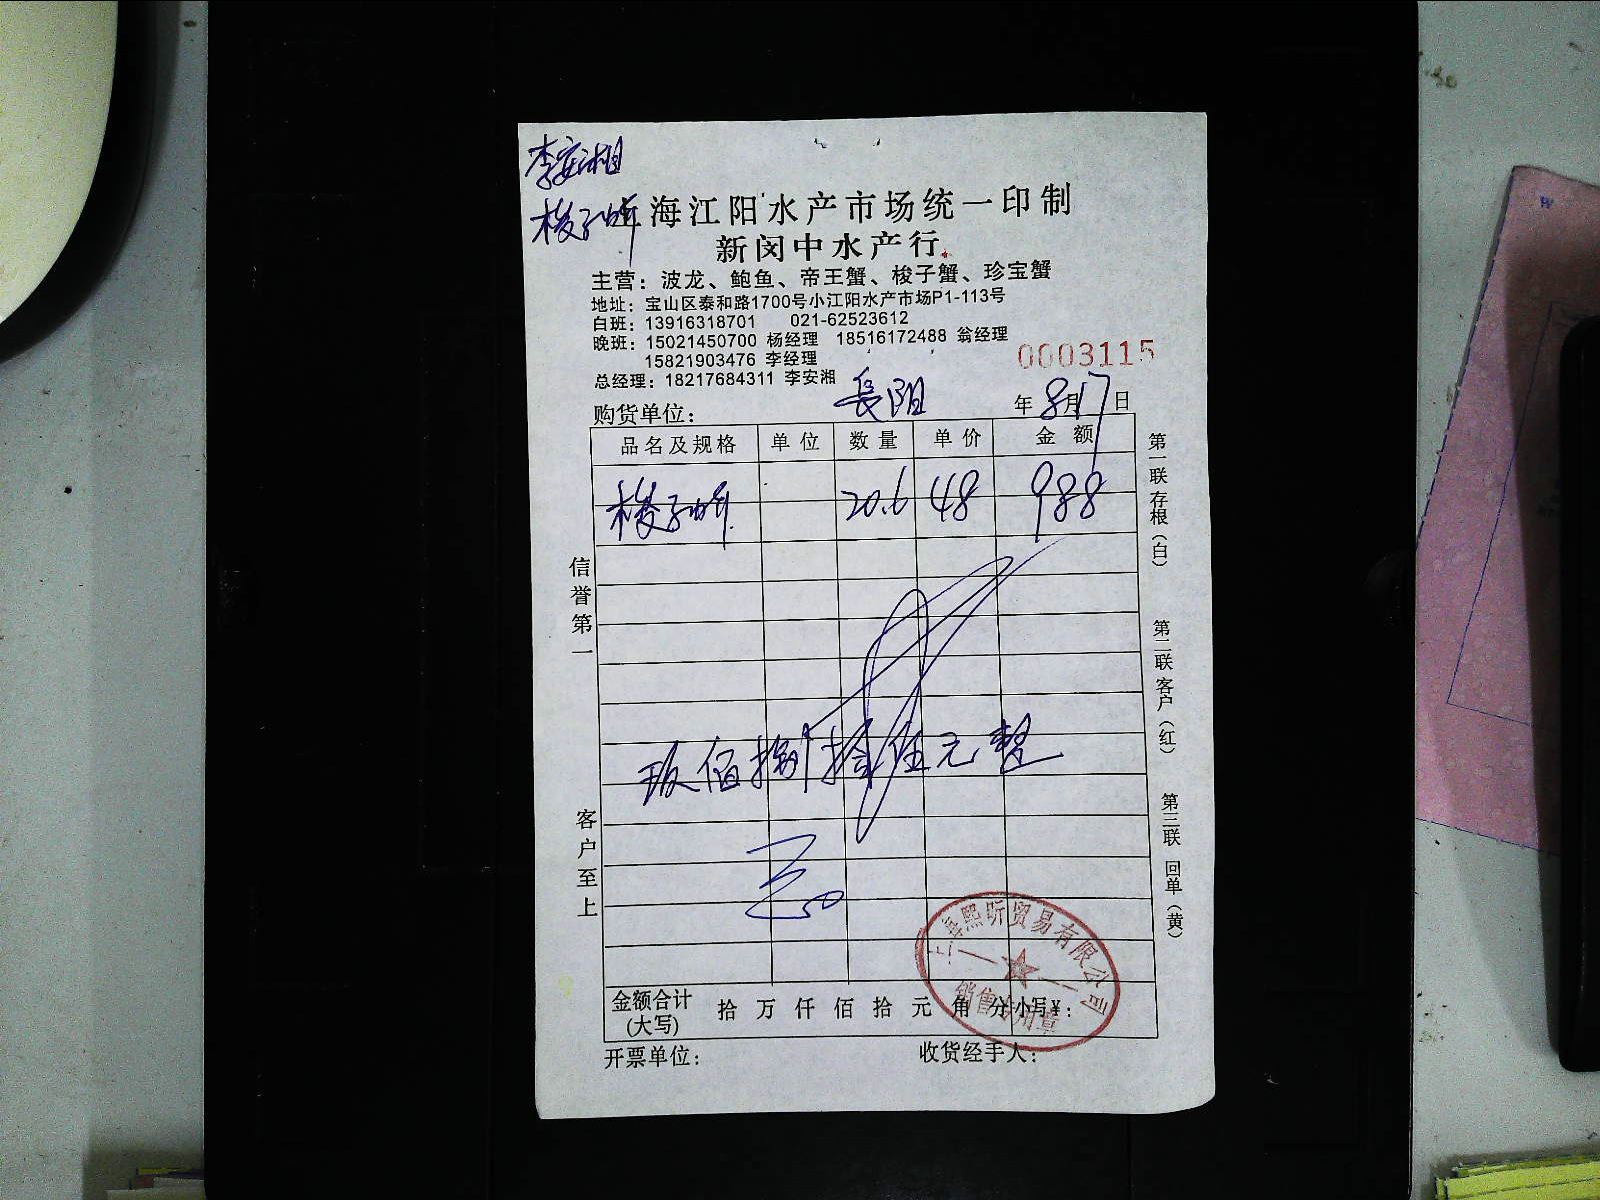 李安湘
梭子蟹
上海江阳水产市场统一印制
新闵中水产行
主营：波龙、鲍鱼、帝王蟹、梭子蟹、珍宝蟹
地址：宝山区泰和路1700号小江阳水产市场P1-113号
白班：13916318701 021-62523612
晚班：15021450700 杨经理 18516172488 翁经理
15821903476 李经理
0003115
总经理：18217684311 李安湘
购货单位：长阳 年8月17日
品名及规格 单位 数量 单价 金额
梭子蟹 20.6 48 988
玖佰捌拾伍元整
金额合计(大写) 拾 万 仟 佰 拾 元 角 分 小写¥：
开票单位： 收货经手人：
信誉第一
客户至上
第一联存根（白）
第二联客户（红）
第三联回单（黄）
上海熙昕贸易有限公司
销售专用章